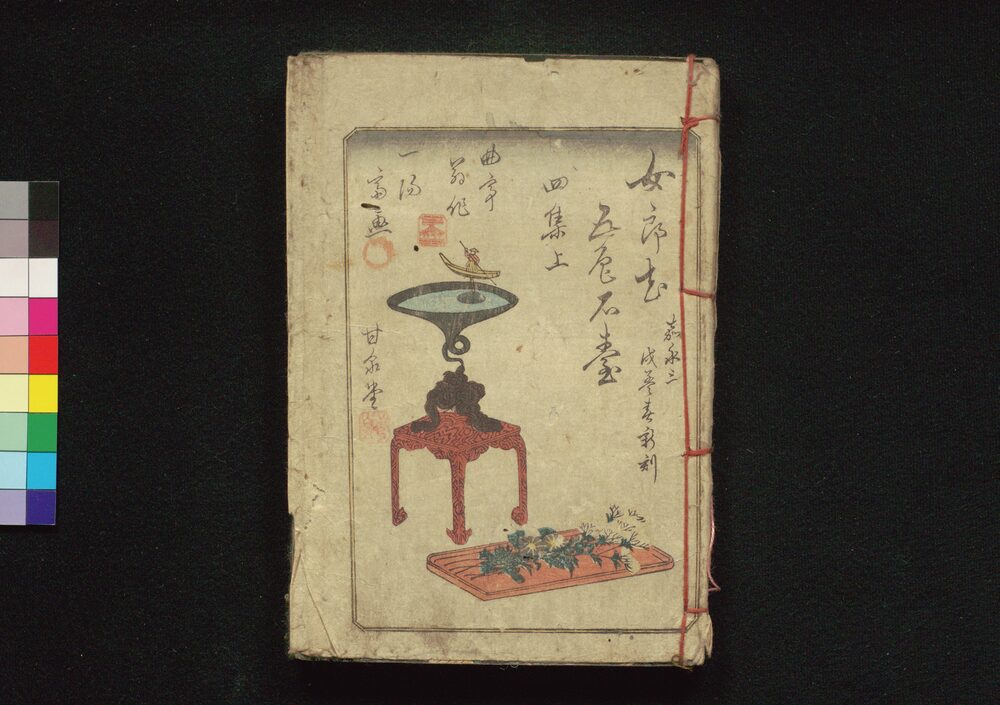 女郎花
五色石臺
四集上
嘉永三
戌孟春新刻
曲亭
翁作
一陽
斎画
甘泉堂